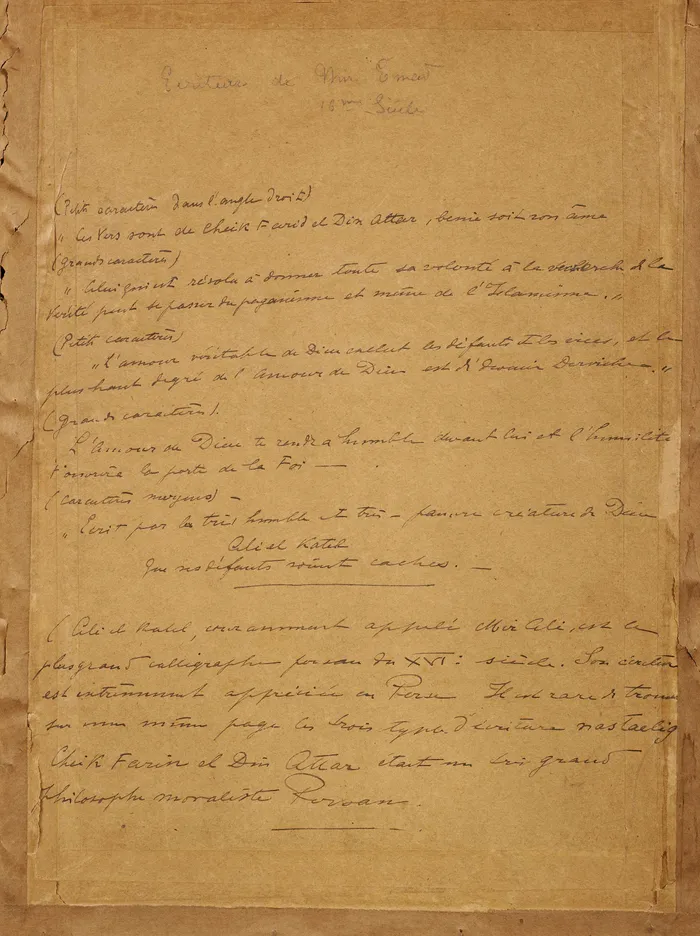 Ecriture de Mir Emad
16me Siècle
(Petits caractères dans l'angle droit)
"Ces Vers sont de Cheik Farid el Din Attar, benie soit son âme
(grands caractères)
"Celui qui est résolu à donner toute sa volonté à la recherche de la
Vérité peut se passer du paganisme et même de l'Islamisme."
(Petits caractères)
"L'amour véritable de Dieu les défauts et les vices, et le
plus haut degré de l'Amour de Dieu est de devenir Derviche."
(grands caractères).
L'Amour de Dieu te rendra humble devant lui et l'humilité
t'ouvrira la porte de la Foi —
(caractères moyens) —
"Ecrit par la très humble et très - pauvre créature de Dieu
Ali el Kateb
Que ses défauts soient cachés. —
(Ali el Katel, couramment appelé Mir Ali, est le
plus grand calligraphe persan du XVIe siècle. Son écriture
est appréciée en Perse Il est rare de trouver
sur une même page les trois types d'écriture nastaelig
Cheik Farin el Din Attar etait un très grand
philosophe moraliste Persan.